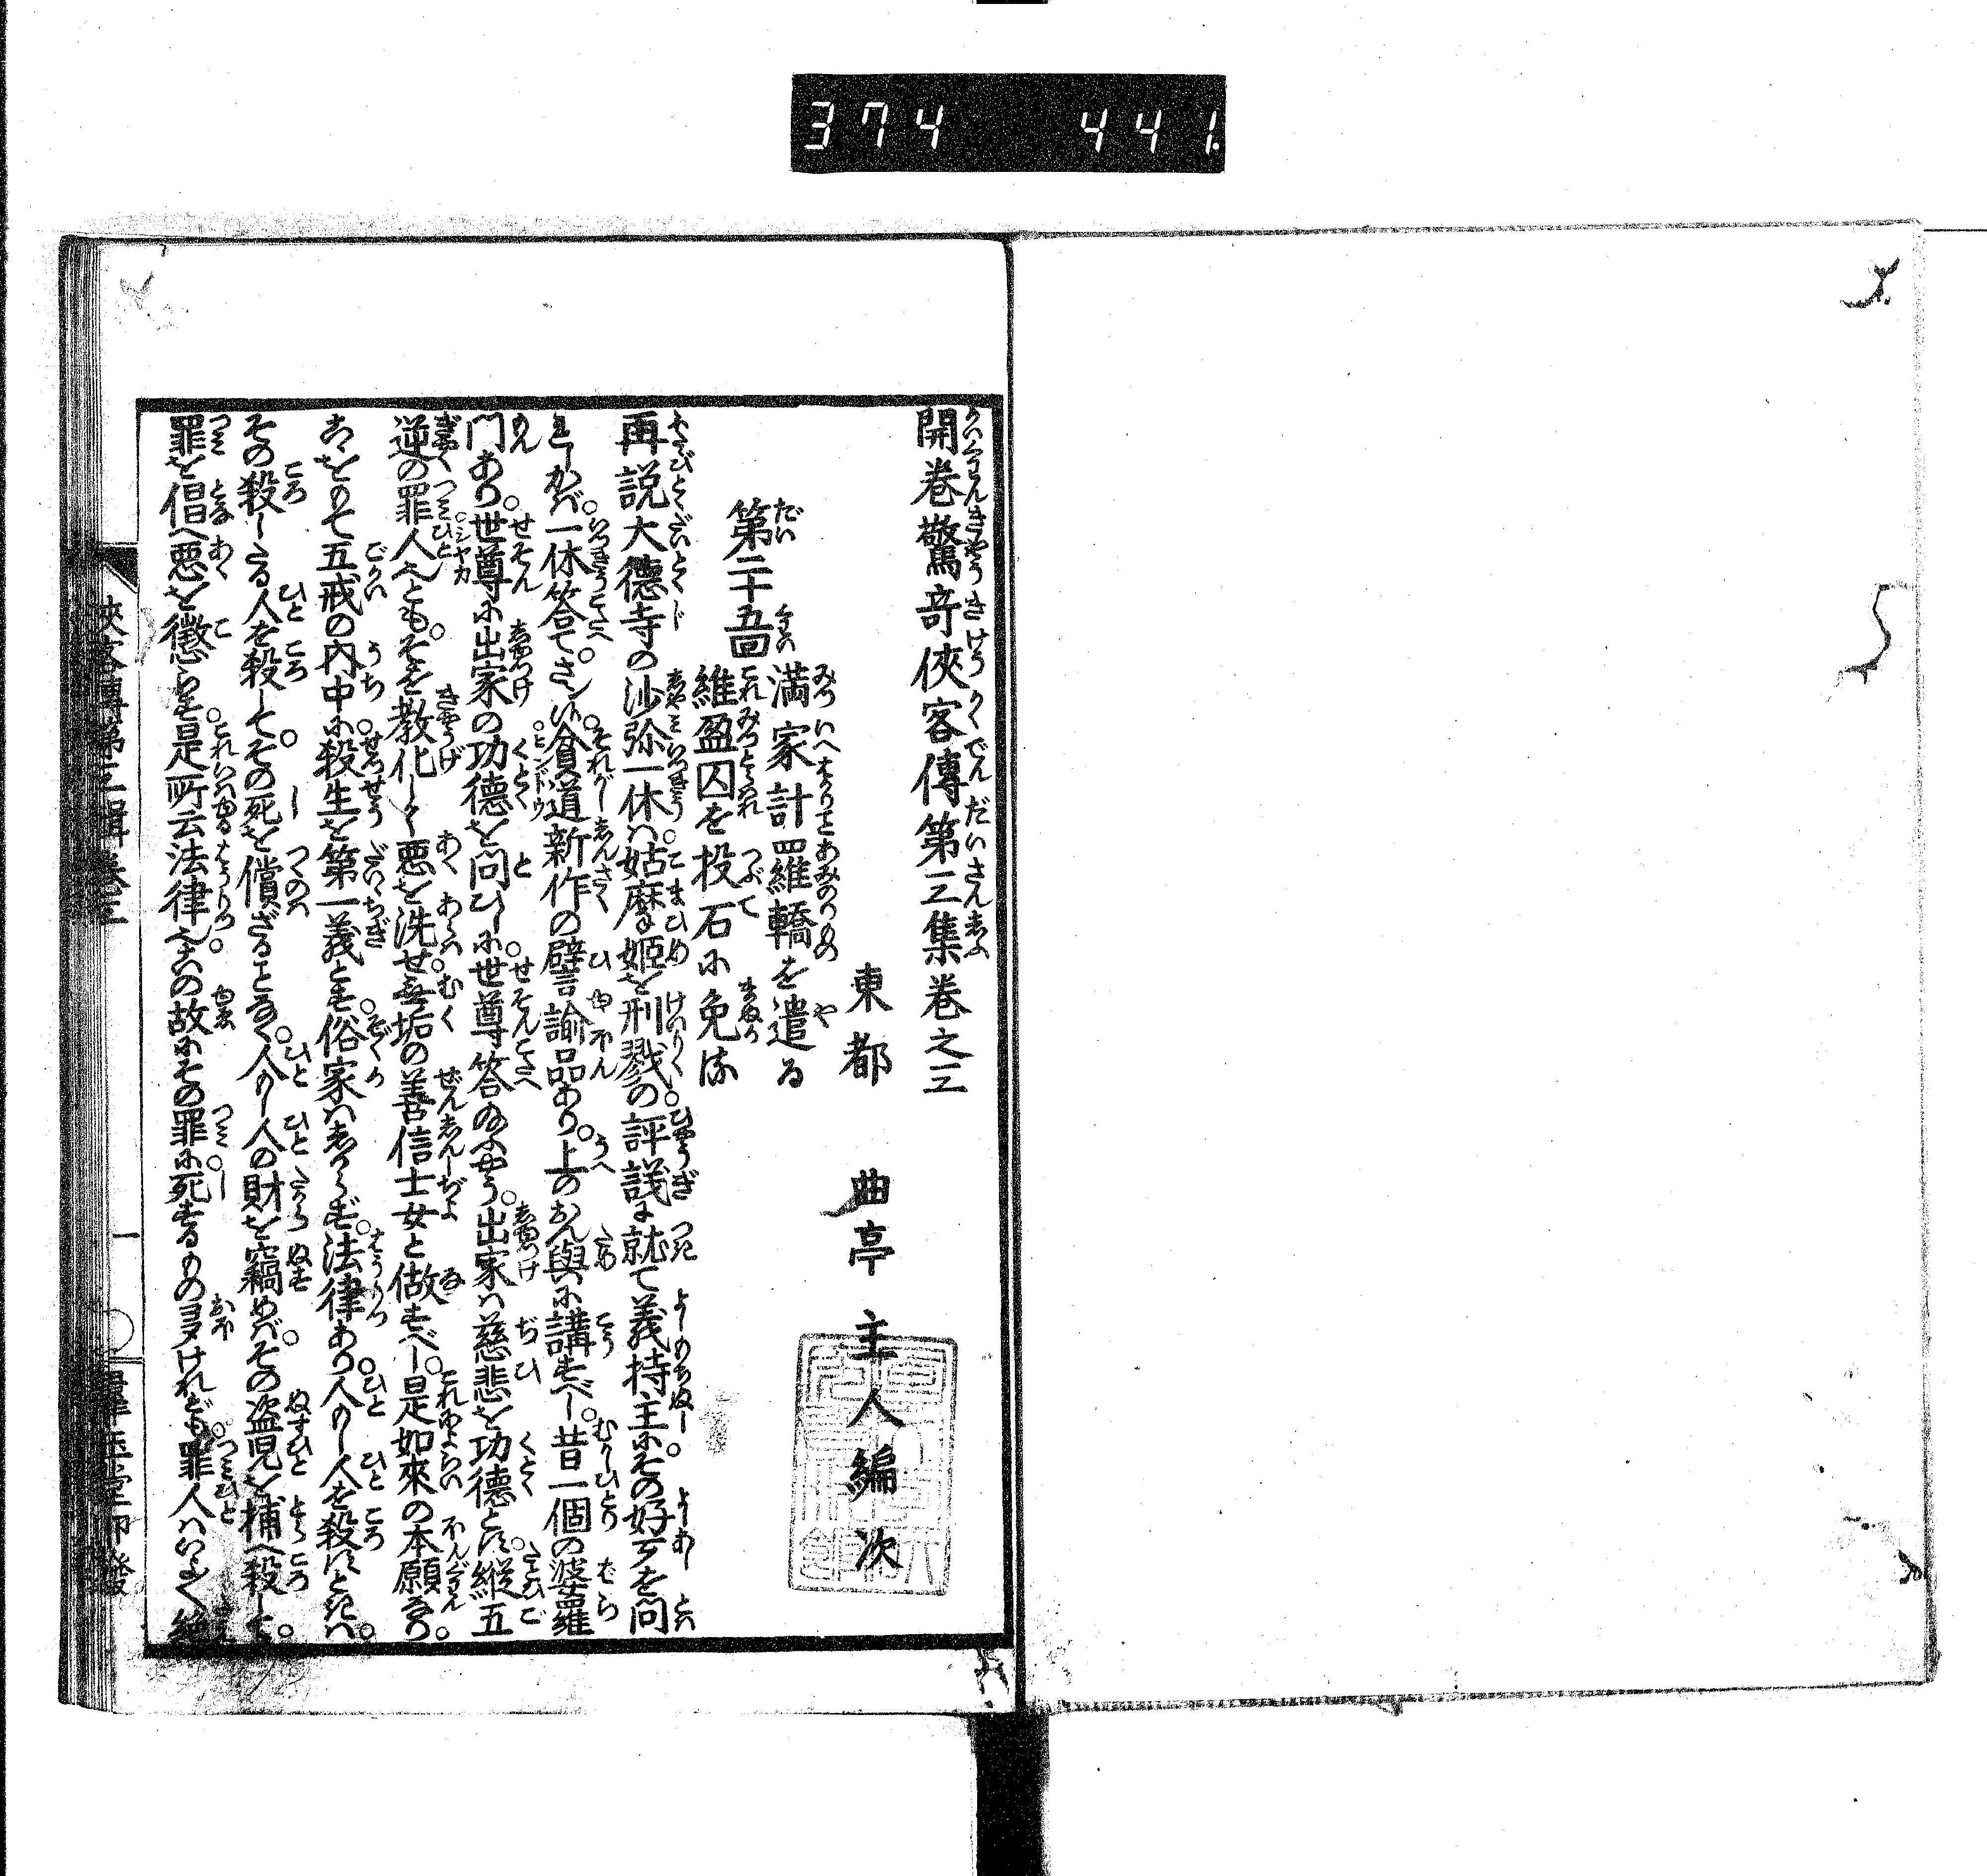 374 441.
開巻驚奇俠客傳第三集巻之三
東都 曲亭主人編次
第二十五回 満家計羅轎を遣る
維盈囚を投石に免る
再説大德寺の沙弥一休ハ姑摩姫を刑戮の評議に就て義持主にその好歹を問
れしかバ一休答てさン候貧道新作の譬諭品あり上のおん與に講すべし昔一個の婆羅
門あり世尊に出家の功德を問ひしに世尊答給ふやう出家ハ慈悲を功德とす縦五
逆の罪人也ともそを教化して悪を洗せ無垢の善信士女と做すべし是如來の本願なり
こゝをもて五戒の内中に殺生を第一義とす俗家ハしからず法律あり人もし人を殺すときハ
その殺したる人を殺してその死を償ざることなく人もし人の財を竊めバその盗児を捕へ殺して
罪を倡へ悪を懲らす是所云法律也この故にその罪に死するもの多けれども罪人ハいよゝく絶
俠客傳第三輯巻三